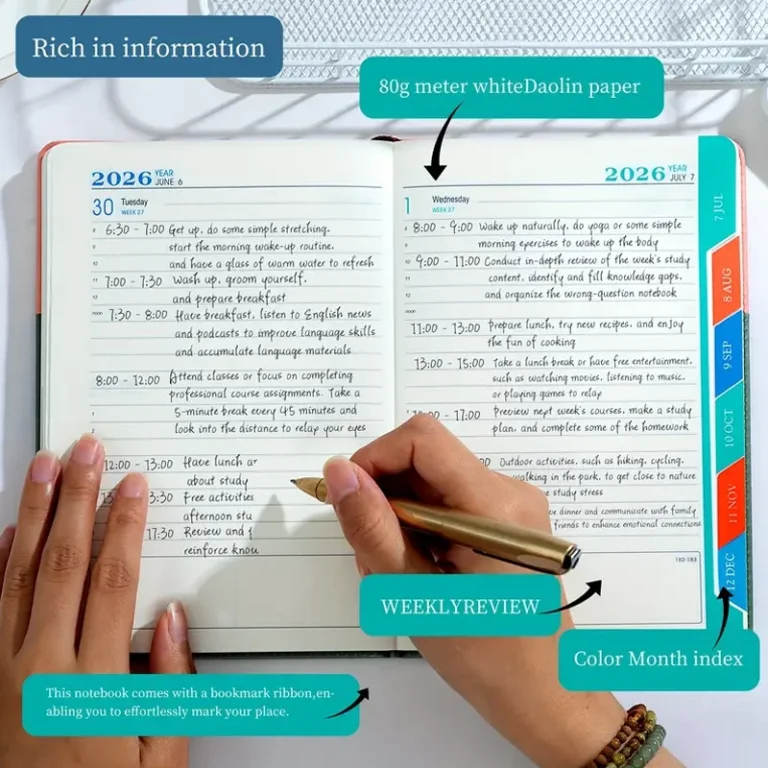 Rich in information
80g meter whiteDaolin paper
2026 YEAR
JUNE 6
30 Tuesday
WEEK 27
6:30 - 7:00 Get up. do some simple stretching.
start the morning wake-up routine.
and have a glass of warm water to refresh
7:00 - 7:30 Wash up. groom yourself.
and prepare breakfast
7:30 - 8:00 Have breakfast. listen to English news
and podcasts to improve language skills
and accumulate language materials
8:00 - 12:00 Attend classes or focus on completing
professional course assignments. Take a
5-minute break every 45 minutes and
look into the distance to relax your eyes
12:00 - 13:00 Have lunch
about study
3:30 Free activities
afternoon
17:30 Review and
reinforce
2026 YEAR
JULY 7
1 Wednesday
WEEK 27
8:00 - 9:00 Wake up naturally. do yoga or some simple
morning exercises to wake up the body
9:00 - 11:00 Conduct in-depth review of the week's study
content. identify and fill knowledge gaps.
and organize the wrong-question notebook
11:00 - 13:00 Prepare lunch. try new recipes. and enjoy
the fun of cooking
13:00 - 15:00 Take a lunch break or have free entertainment.
such as watching movies. listening to music.
or playing games to relax
- 17:00 Preview next week's courses. make a study
plan. and complete some of the homework
Outdoor activities. such as hiking. cycling.
walking in the park. to get close to nature
study stress
dinner and communicate with family
friends to enhance emotional connections
182-183
7 JUL
8 AUG
9 SEP
10 OCT
11 NOV
12 DEC
WEEKLYREVIEW
Color Month index
This notebook comes with a bookmark ribbon,en-
abling you to effortlessly mark your place.